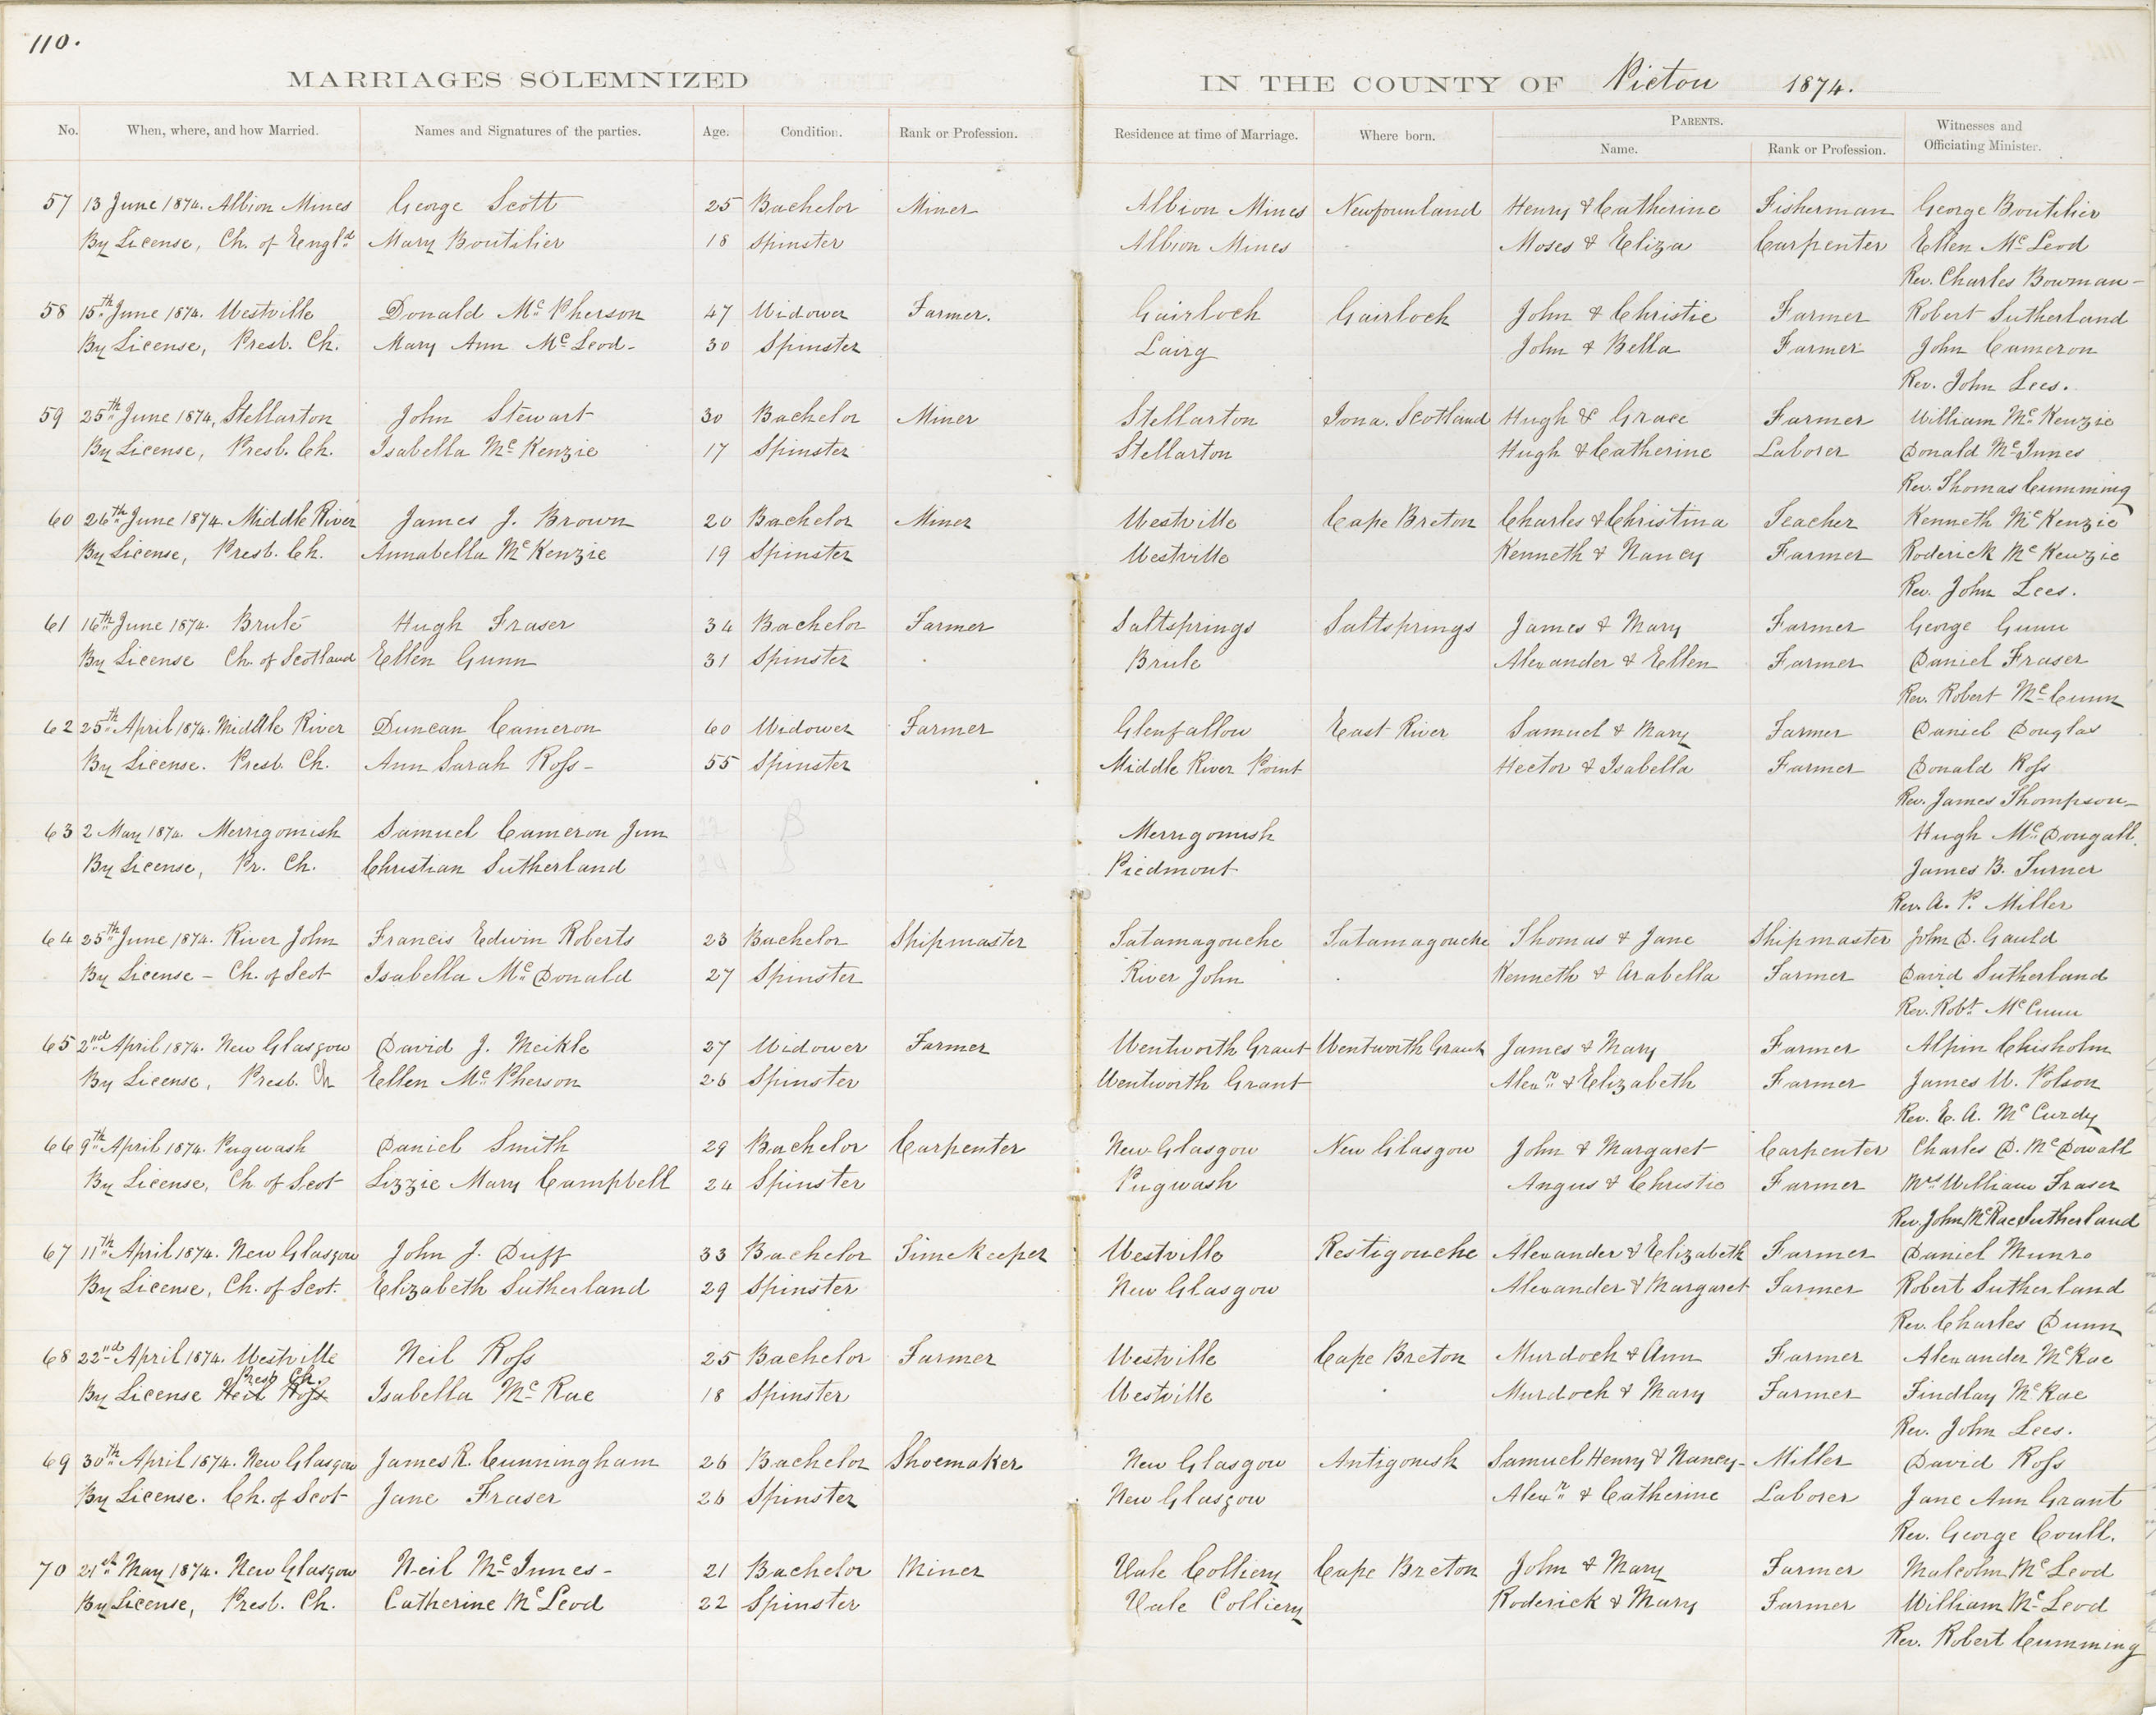 110.
MARRIAGES SOLEMNIZED IN THE COUNTY OF Pictou 1874.
No. When, where, and how Married. Names and Signatures of the parties. Age. Condition. Rank or Profession. Residence at time of Marriage. Where born. PARENTS. Witnesses and
Name. Rank or Profession. Officiating Minister.
57 13 June 1874. Albion Mines George Scott 25 Bachelor Miner Albion Mines Newfounland Henry & Catherine Fisherman George Boutilier
By License, Ch. of Engld Mary Boutilier 18 Spinster Albion Mines Moses & Eliza Carpenter Ellen McLeod
Rev. Charles Bowman-
58 15th June 1874. Westville Donald McPherson 47 Widower Farmer. Gairloch Gairloch John & Christie Farmer Robert Sutherland
By License, Presb. Ch. Mary Ann McLeod- 30 Spinster Lairg John & Bella Farmer John Cameron
Rev. John Lees.
59 25th June 1874, Stellarton John Stewart 30 Bachelor Miner Stellarton Iona. Scotland Hugh & Grace Farmer William McKenzie
By License, Presb. Ch. Isabella McKenzie 17 Spinster Stellarton Hugh & Catherine Laborer Donald McInnes
Rev. Thomas Cumming
60 26th June 1874. Middle River James J. Brown 20 Bachelor Miner Westville Cape Breton Charles & Christina Teacher Kenneth McKenzie
By License, Presb. Ch. Annabella McKenzie 19 Spinster Westville Kenneth & Nancy Farmer Roderick McKenzie
Rev. John Lees.
61 16th June 1874. Brulé Hugh Fraser 34 Bachelor Farmer Saltsprings Saltsprings James & Mary Farmer George Gunn
By License Ch. of Scotland Ellen Gunn 31 Spinster Brule Alexander & Ellen Farmer Daniel Fraser
Rev. Robert McCunn
62 25th April 1874. Middle River Duncan Cameron 60 Widower Farmer Glenfallow East River Samuel & Mary Farmer Daniel Douglas
By License. Presb. Ch. Ann Sarah Ross- 55 Spinster Middle River Point Hector & Isabella Farmer Donald Ross
Rev. James Thompson-
63 2 May 1874. Merrigomish Samuel Cameron Jun 22 B Merrigomish Hugh McDougall.
By License, Pr. Ch. Christian Sutherland 24 S Piedmont James B. Turner
Rev. A. P. Miller
64 25th June 1874. River John Francis Edwin Roberts 23 Bachelor Shipmaster Tatamagouche Tatamagouche Thomas & Jane Shipmaster John D. Gauld
By License - Ch. of Scot Isabella McDonald 27 Spinster River John Kenneth & Arabella Farmer David Sutherland
Rev. Robt McCunn
65 2nd April 1874. New Glasgow David J. Meikle 27 Widower Farmer Wentworth Grant Wentworth Grant James & Mary Farmer Alpin Chisholm
By License, Presb. Ch Ellen McPherson 26 Spinster Wentworth Grant Alexr & Elizabeth Farmer James W. Polson
Rev. E. A. McCurdy
66 9th April 1874. Pugwash Daniel Smith 29 Bachelor Carpenter New Glasgow New Glasgow John & Margaret Carpenter Charles D. McDowall
By License, Ch of Scot Lizzie Mary Campbell 24 Spinster Pugwash Angus & Christie Farmer Mrs William Fraser
Rev. John McRae Sutherland
67 11th April 1874. New Glasgow John J. Duff 33 Bachelor Timekeeper Westville Restigouche Alexander & Elizabeth Farmer Daniel Munro
By License, Ch. of Scot. Elizabeth Sutherland 29 Spinster New Glasgow Alexander & Margaret Farmer Robert Sutherland
Rev. Charles Dunn
68 22nd April 1874. Westville Neil Ross 25 Bachelor Farmer Westville Cape Breton Murdoch & Ann Farmer Alexander McRae
Presb Ch.
By License Neil Ross Isabella McRae 18 Spinster Westville Murdoch & Mary Farmer Findlay McRae
Rev. John Lees.
69 30th April 1874. New Glasgow James R. Cunningham 26 Bachelor Shoemaker New Glasgow Antigonish Samuel Henry & Nancy- Miller David Ross
By License. Ch. of Scot Jane Fraser 26 Spinster New Glasgow Alexr & Catherine Laborer Jane Ann Grant
Rev. George Coull.
70 21st May 1874. New Glasgow Neil McInnes- 21 Bachelor Miner Vale Colliery Cape Breton John & Mary Farmer Malcolm McLeod
By License, Presb. Ch. Catherine McLeod 22 Spinster Vale Colliery Roderick & Mary Farmer William McLeod
Rev. Robert Cumming